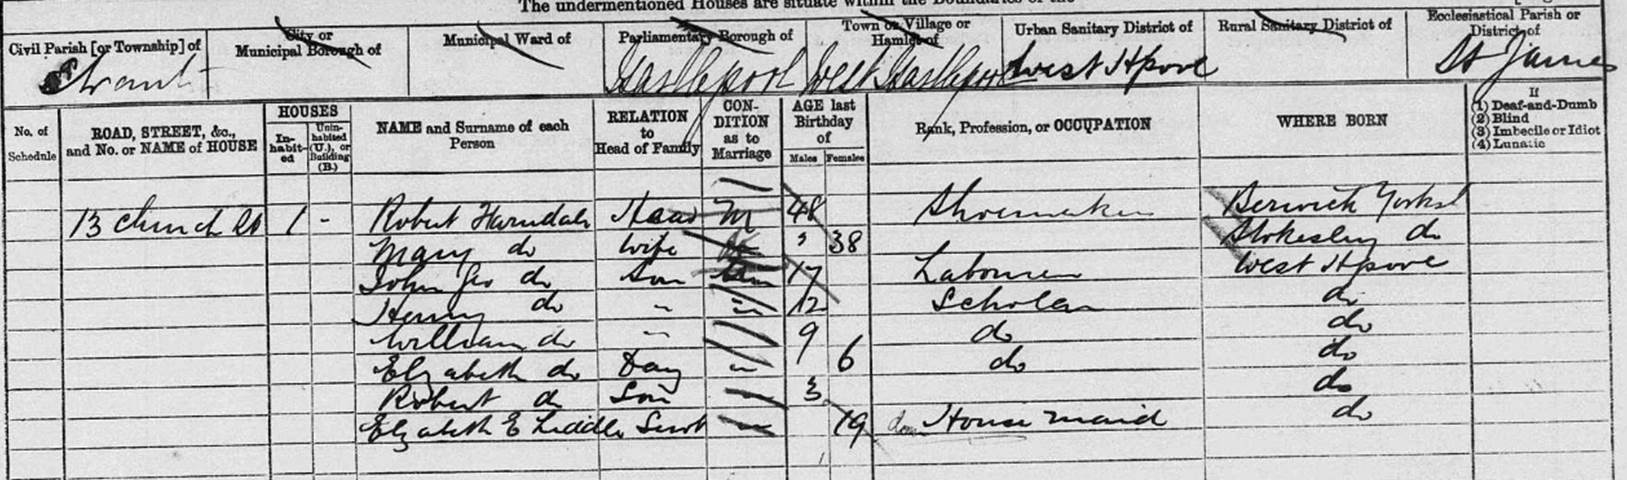 The undermentioned Houses are situate within the Boundaries of the
Civil Parish [or Township] of
City or Municipal Borough of
Municipal Ward of
Parliamentary Borough of
Town or Village or Hamlet of
Urban Sanitary District of
Rural Sanitary District of
Ecclesiastical Parish or District of
Stranton Hartlepool West Hartlepool West Hpool St James
No. of Schedule
ROAD, STREET, &c., and No. or NAME of HOUSE
HOUSES
In-habit-ed
Unin-habited (U.), or Building (B.)
NAME and Surname of each Person
RELATION to Head of Family
CON-DITION as to Marriage
AGE last Birthday of
Males Females
Rank, Profession, or OCCUPATION
WHERE BORN
If
(1) Deaf-and-Dumb
(2) Blind
(3) Imbecile or Idiot
(4) Lunatic
13 Church St 1 - Robert Harndale Head M 48 Shoemaker Berwick Yorks
Mary do Wife 38 Stokesley do
John Geo do Son 17 Labourer West Hpool
Henry do " " 12 Scholar do
William do " 9 do do
Elizabeth do Daug " 6 do do
Robert do Son 3 do
Elizabeth E Liddle Servt 19 dom House maid do